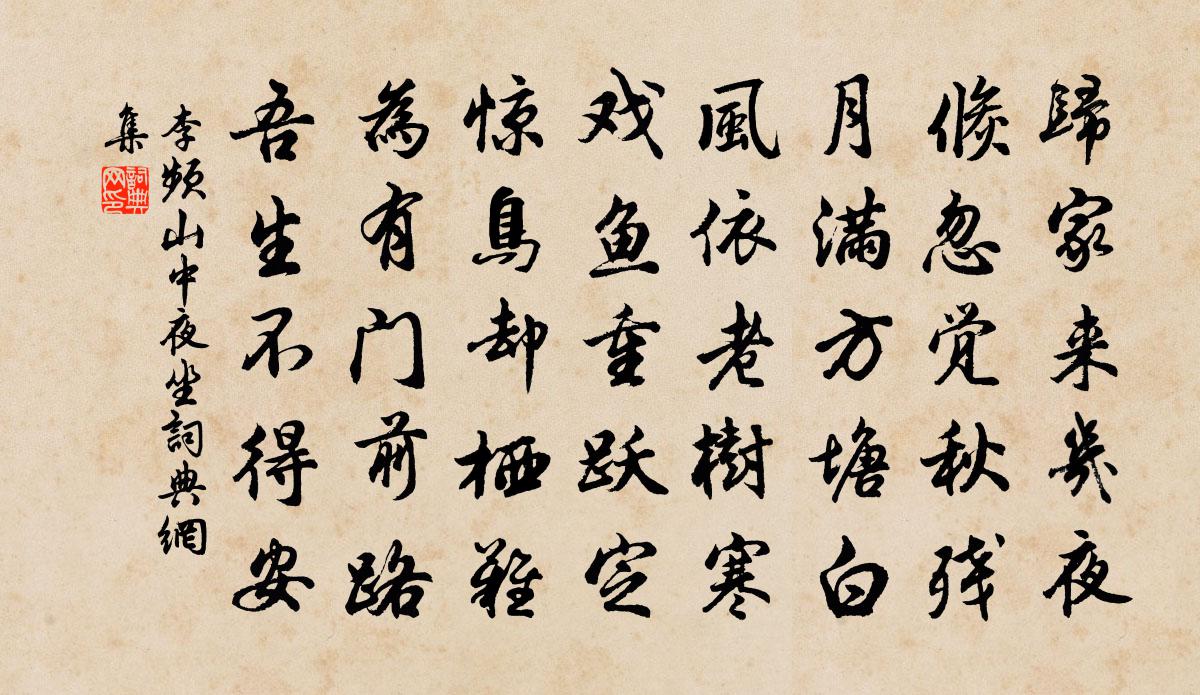 歸家来幾夜
倏忽觉秋残
月满方塘白
風依老樹寒
戏鱼重跃定
惊鳥却栖難
為有门前路
吾生不得安
李频山中夜坐詞典網
集
詞典網印